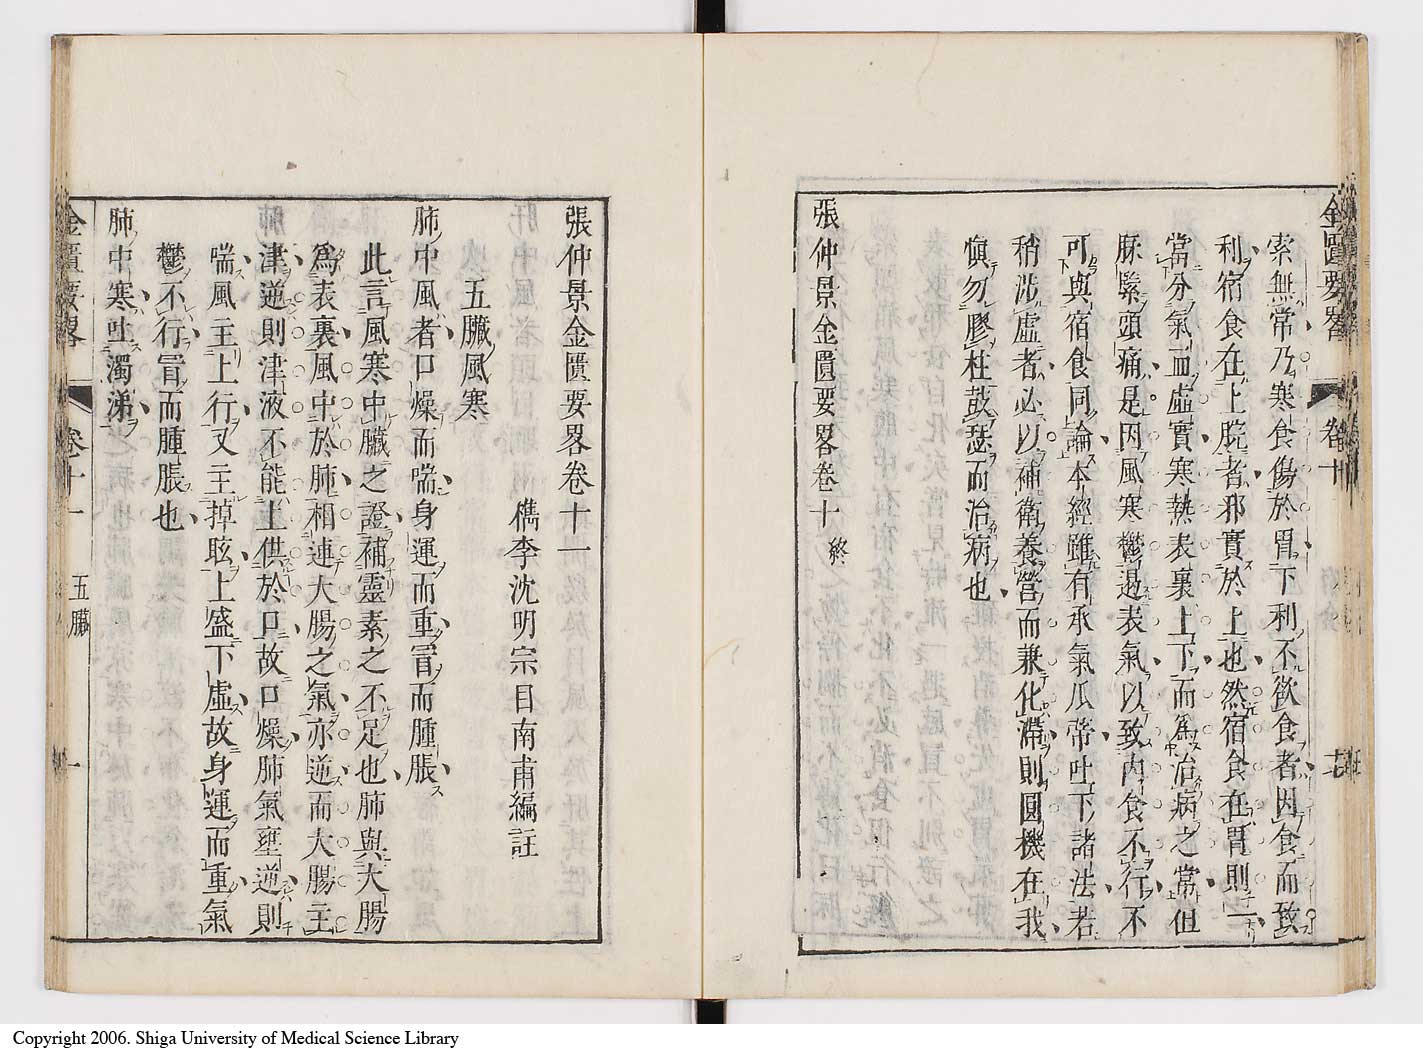 金匱要畧 卷十
索無常乃寒食傷於胃下利不欲食者因食而致
利宿食在上脘者邪實於上也然宿食在胃則一
當分氣血虛實寒熱表裏上下而爲治病之常但
脉緊頭痛是因風寒鬱遏表氣以致內食不行不
可與宿食同論本經雖有承氣瓜蒂吐下諸法若
稍涉虛者必以補衛養營而兼化滯則圓機在我
愼勿膠柱鼓瑟而治病也
張仲景金匱要畧卷十 終
張仲景金匱要畧卷十一
檇李沈明宗目南甫編註
五臟風寒
肺中風者口燥而喘身運而重冒而腫脹
此言風寒中臟之證補靈素之不足也肺與大腸
爲表裏風中於肺相連大腸之氣亦逆而大腸主
津逆則津液不能上供於口故口燥肺氣壅逆則
喘風主上行又主掉眩上盛下虛故身運而重氣
鬱不行冒而腫脹也
肺中寒吐濁涕
金匱要畧 卷十一 五臟 一
Copyright 2006. Shiga University of Medical Science Library